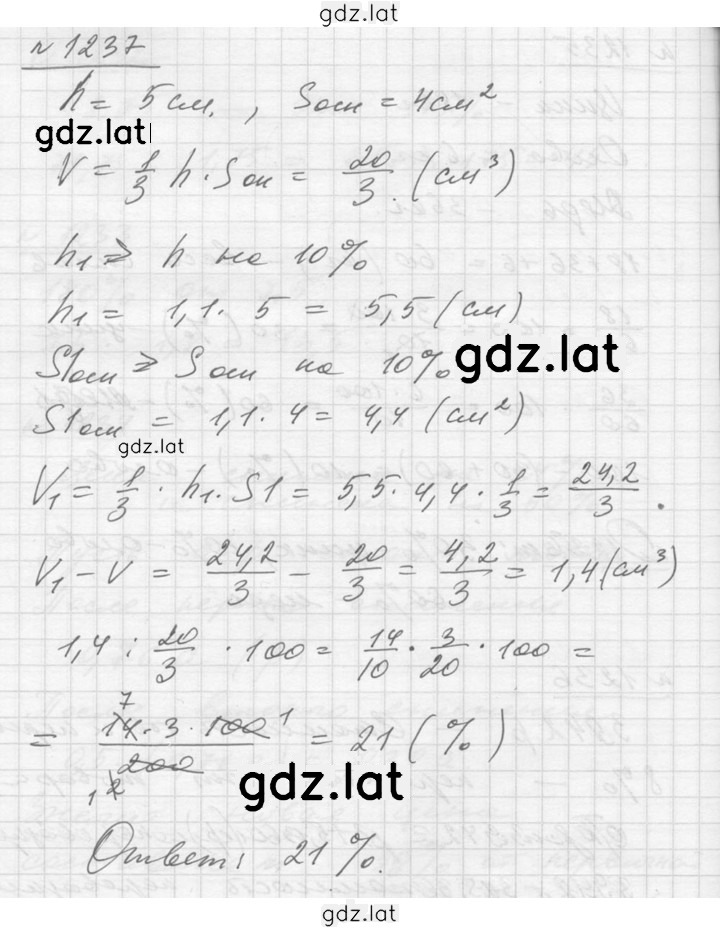 gdz.lat
№ 1237
h = 5 см. , Sосн = 4 см²
gdz.lat
V = 1/3 h · Sосн = 20/3 (см³)
h₁ > h на 10%
h₁ = 1,1 · 5 = 5,5 (см)
S1осн > Sосн на 10%
gdz.lat
S1осн = 1,1 · 4 = 4,4 (см²)
gdz.lat
V₁ = 1/3 · h₁ · S1 = 5,5 · 4,4 · 1/3 = 24,2/3 .
V₁ – V = 24,2/3 – 20/3 = 4,2/3 = 1,4 (см³)
1,4 : 20/3 · 100 = 14/10 · 3/20 · 100 =
= 14 · 3 · 100 / 200 = 21 (%)
7 1
1 2
gdz.lat
Ответ: 21%.
gdz.lat